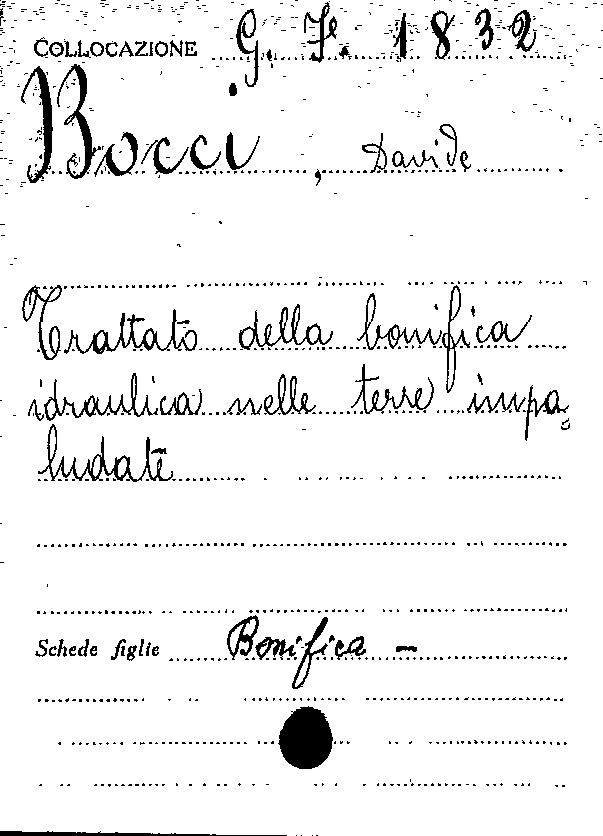 COLLOCAZIONE G. F. 1832
Bocci, Davide
Trattato della bonifica
idraulica nelle terre impa
ludate
Schede figlie Bonifica –